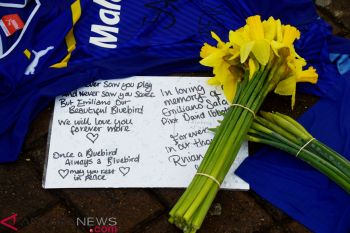 Malay
Never Saw you play
and never saw you score
But Emiliano Our
Bluebird
We will love you
forever more
Once a Bluebird
Always a Bluebird
may you rest
in peace
In loving
memory of
Emiliano Sala
Pilot David
Forever
in our
NEWS.COM